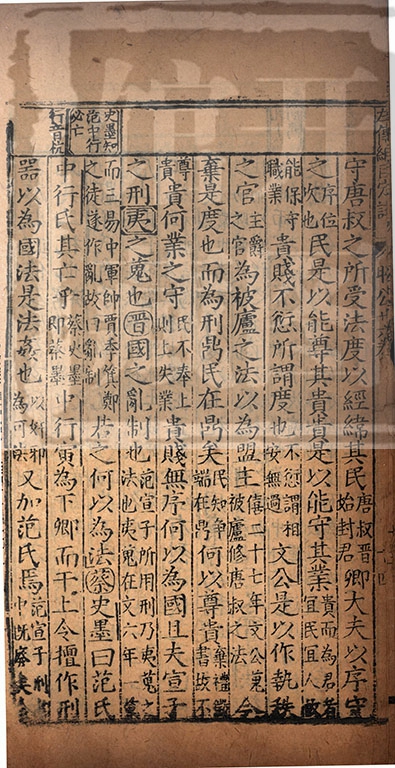 守唐叔之所受法度以經緯其民唐叔晉始封君卿大夫以序守
之序位次也民是以能尊其貴貴是以能守其業貴而為君者宜民宜人故
能保守職業貴賤不愆所謂度也不愆謂相安無過文公是以作執秩
之官主爵之官為被廬之法以為盟主僖二十七年文公蒐被廬修唐叔之法今
棄是度也而為刑鼎民在鼎矣民知爭端在鼎何以尊貴棄禮徵書故不
尊貴貴何業之守民不奉上則上失業貴賤無序何以為國且夫宣子
之刑夷之蒐也晉國之亂制也范宣子所用刑乃夷蒐之法也夷蒐在文六年一蒐
而三易中軍帥賈季箕鄭之徒遂作亂故曰亂制若之何以為法蔡史墨曰范氏
史墨知范中行必亡
行音杭
中行氏其亡乎蔡史墨即蔡墨中行寅為下卿而干上令擅作刑
器以為國法是法姦也以奸邪為可法又加范氏焉范宣子刑